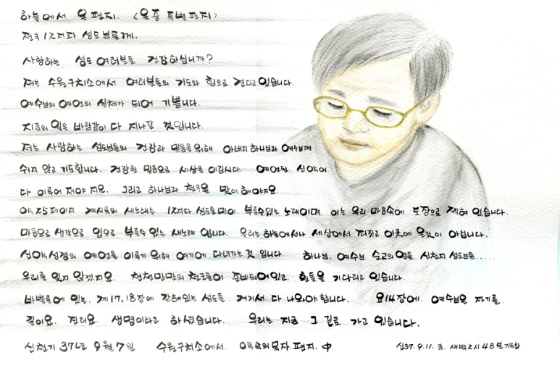 하늘에서 온 편지. <옥중 특별편지>
전국 12지파 성도님들께.
사랑하는 성도 여러분들 건강하십니까?
저는 수원구치소에서 여러분들의 기도와 힘으로 견디고 있습니다.
예수님의 예언의 실체가 되어 기쁩니다.
지금의 이 바람같이 다 지나갈 것입니다.
저는 사랑하는 성도들의 건강과 믿음을 위해 아버지 하나님과 예수님께
쉬지 않고 기도합니다. 건강한 믿음으로 세상을 이깁시다. 예언된 신약이
다 이루어져야 지요. 그리고 하나님과 천국을 맞이해야지요
계시록의 새노래는 12지파 성도들만이 부를수있는 노래이며, 이는 우리 마음속에 보장으로 있습니다.
마음으로 생각으로 입으로 부를수 있는 새노래 입니다. 우리는 하늘에서나 세상에서 이곳에 온것이 아닙니다.
성경의 예언을 이루기 위해 여기에 다녀가는 것 입니다. 하나님, 예수님 순교의 영들 신천지 성도들을......
우리를 잊지 있겠지요 천천만만의 천군들이 준비되어있고 힘들을 기다리고 있습니다
바벨론에 있는, 계17, 18장에 갇혀있는 성도들 거기서 다 나와야 합니다. 요14장에, 예수님은 자기를,
길이요, 진리요, 생명이라고 하셨습니다. 우리는 지금 그 길로 가고 있습니다.
신천기 37년 9월 7일 수원구치소에서. 편지. 中
신37. 9. 11. 금. 새벽 2시 48분